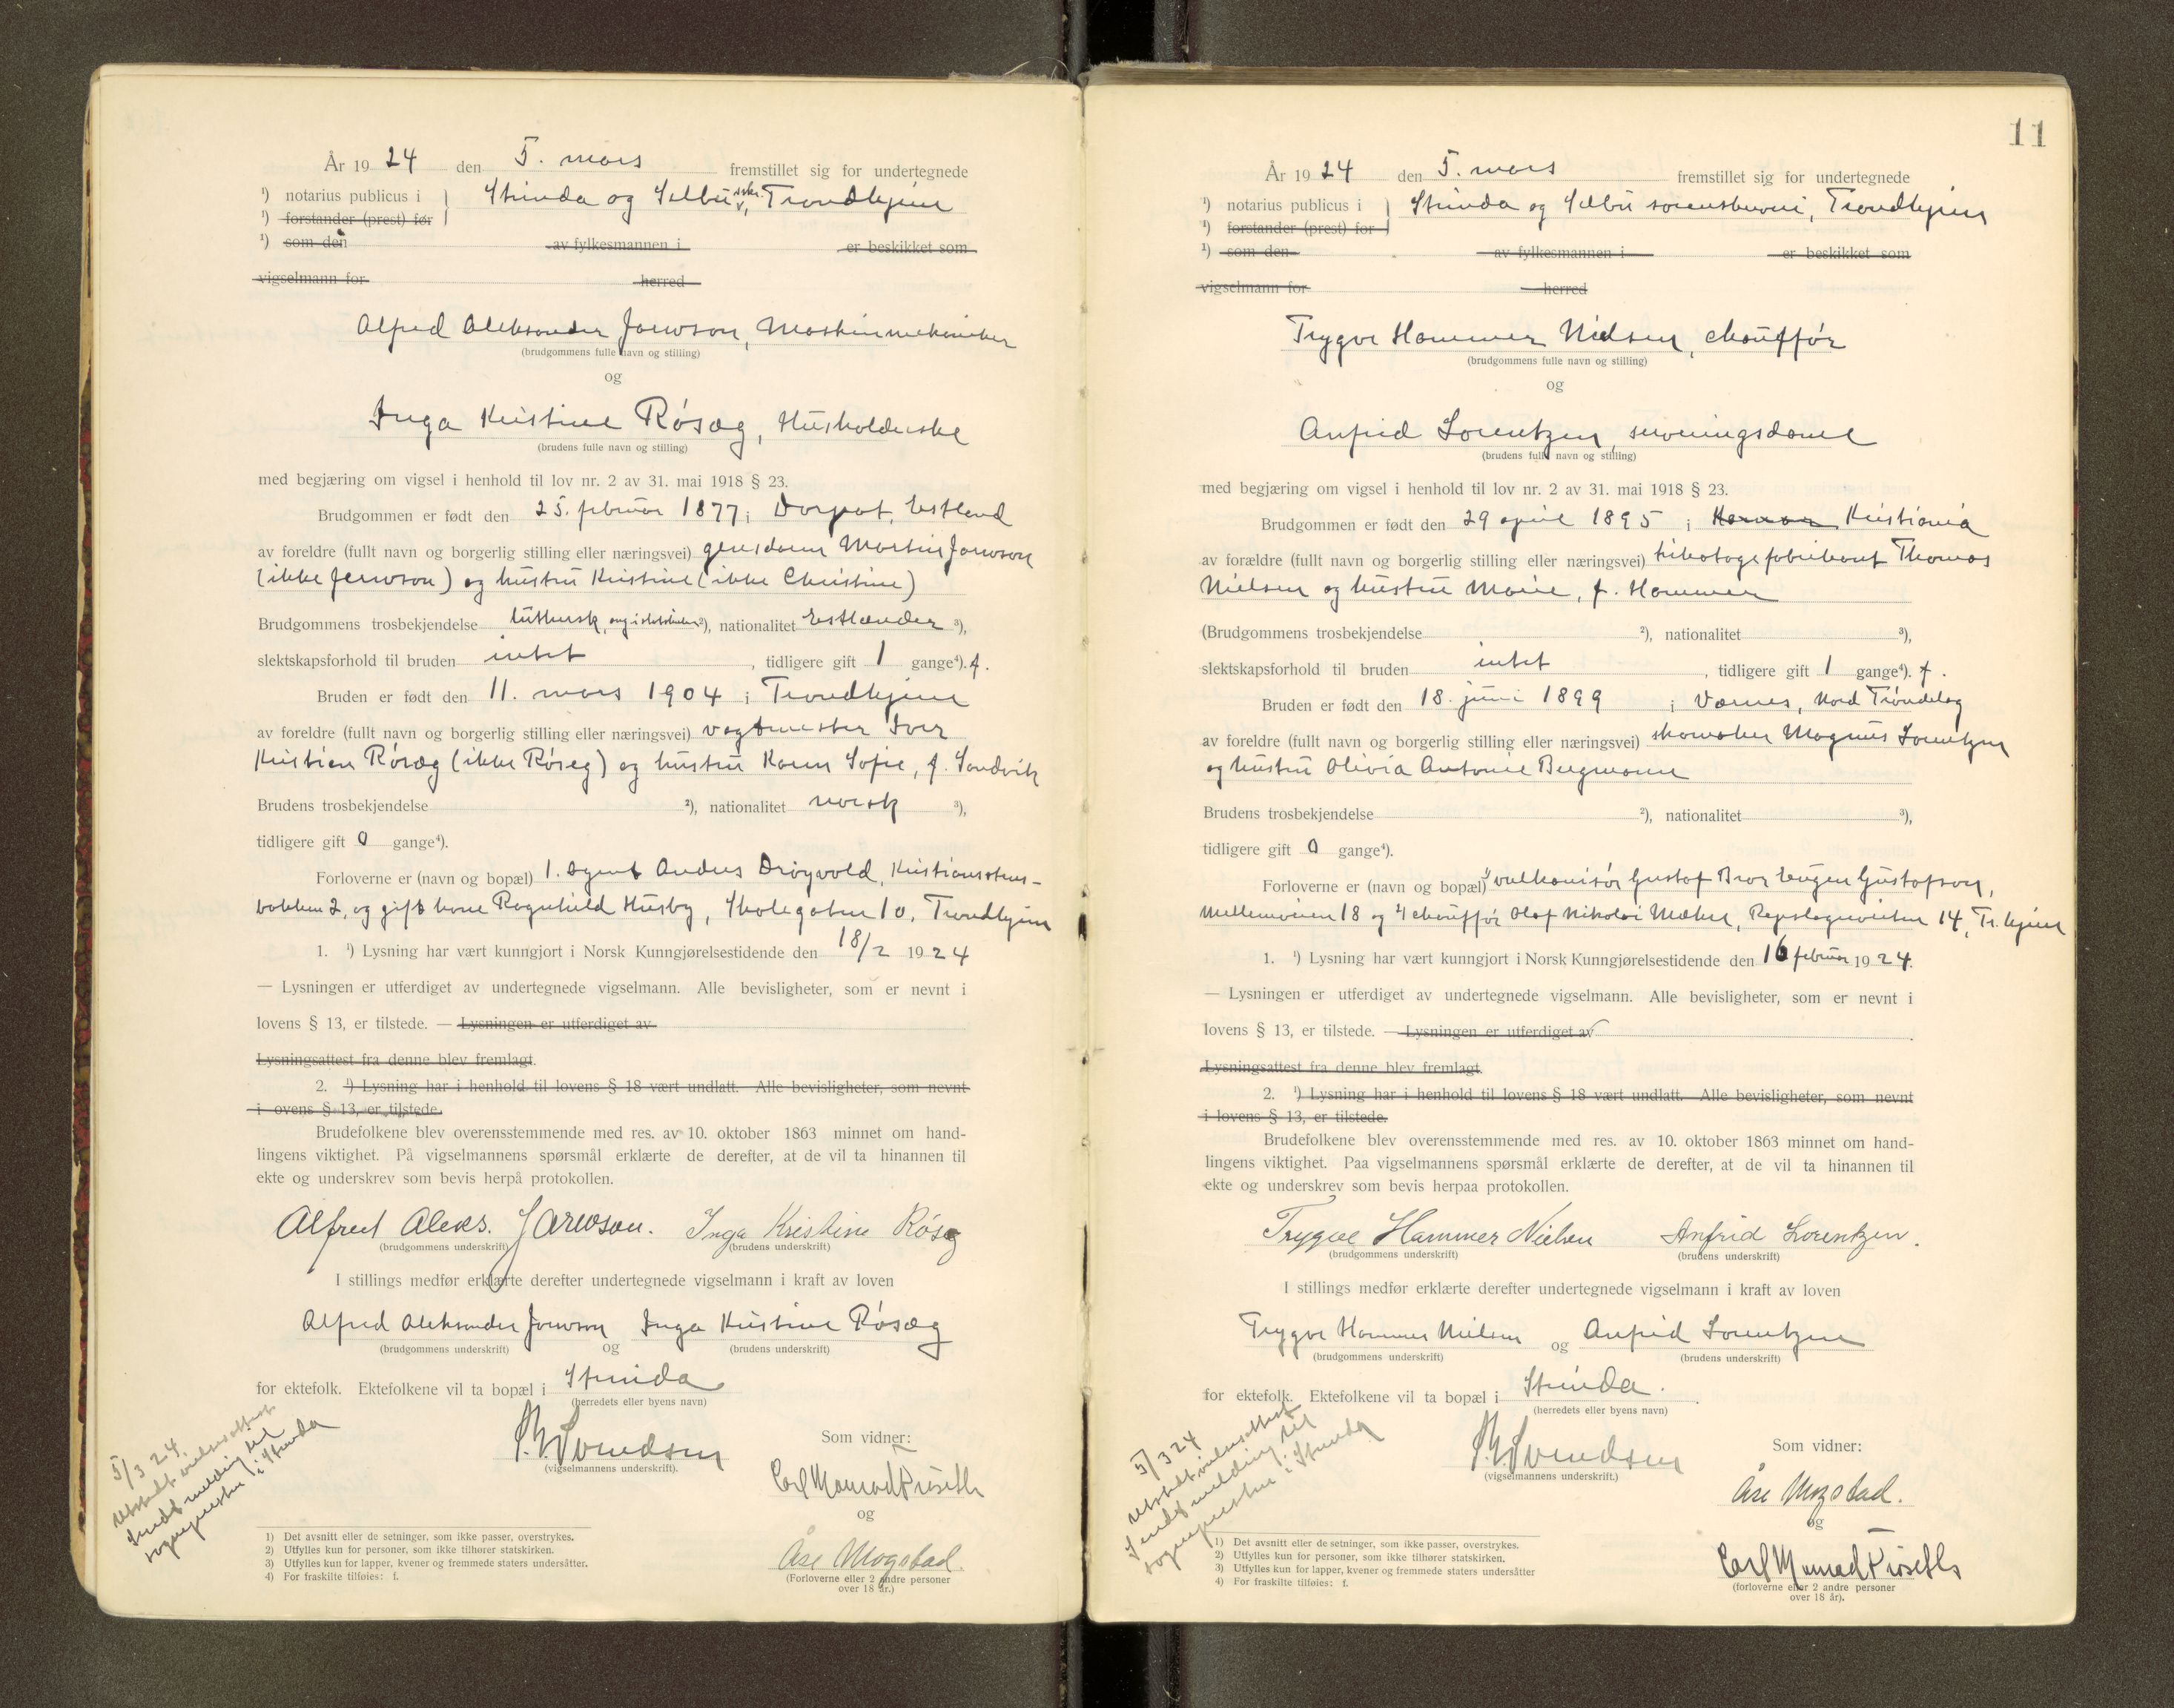 År 19 24 den 5. mars fremstillet sig for undertegnede
¹) notarius publicus i } Strinda og Selbu sskr. Trondhjem
¹) forstander (prest) før
¹) som den av fylkesmannen i er beskikket som
vigselmann for herred
Alfred Aleksander Jarwson, Maskinmekaniker
(brudgommens fulle navn og stilling)
og
Inga Kristine Røsæg, Husholderske
(brudens fulle navn og stilling)
med begjæring om vigsel i henhold til lov nr. 2 av 31. mai 1918 § 23.
Brudgommen er født den 25. februar 1877 i Dorpat, Estland
av foreldre (fullt navn og borgerlig stilling eller næringsvei) gensdarm Martin Jarwson
(ikke Jerwson) og hustru Kristine (ikke Christine)
Brudgommens trosbekjendelse luthersk, ²), nationalitet Estlænder ³),
slektskapsforhold til bruden intet , tidligere gift 1 gange⁴). f.
Bruden er født den 11. mars 1904 i Trondhjem
av foreldre (fullt navn og borgerlig stilling eller næringsvei) vogtmester Iver
Kristian Røsæg (ikke Røseg) og hustru Karen Sofie, f. Sandvik
Brudens trosbekjendelse ²), nationalitet norsk ³),
tidligere gift 0 gange⁴).
Forloverne er (navn og bopæl) 1. Agent Anders Drøyvold, Kristianstens-
bakken 2, og gift kone Ragnhild Husby, Skolegaten 10, Trondhjem
1. ¹) Lysning har vært kunngjort i Norsk Kunngjørelsestidende den 18/2 19 24
— Lysningen er utferdiget av undertegnede vigselmann. Alle bevisligheter, som er nevnt i
lovens § 13, er tilstede. — Lysningen er utferdiget av
Lysningsattest fra denne blev fremlagt.
2. ¹) Lysning har i henhold til lovens § 18 vært undlatt. Alle bevisligheter, som nevnt
i ovens § 13, er tilstede.
Brudefolkene blev overensstemmende med res. av 10. oktober 1863 minnet om hand-
lingens viktighet. På vigselmannens spørsmål erklærte de derefter, at de vil ta hinannen til
ekte og underskrev som bevis herpå protokollen.
Alfred Aleks. Jarwson. Inga Kristine Røsæg
(brudgommens underskrift) (brudens underskrift)
I stillings medfør erklærte derefter undertegnede vigselmann i kraft av loven
Alfred Aleksander Jarwson Inga Kristine Røsæg
(brudgommens underskrift) og (brudens underskrift)
for ektefolk. Ektefolkene vil ta bopæl i Strinda
(herredets eller byens navn)
Svendsen
(vigselmannens underskrift).
Som vidner:
Carl Monrad Krøseth
og
Åse Mogstad.
(Forloverne eller 2 andre personer
over 18 år.)
5/3 24
Utstedt vielsesattest
Sendt melding til
sogneprest i Strinda
1) Det avsnitt eller de setninger, som ikke passer, overstrykes.
2) Utfylles kun for personer, som ikke tilhører statskirken.
3) Utfylles kun for lapper, kvener og fremmede staters undersåtter.
4) For fraskilte tilføies: f.
11
År 19 24 den 5. mars fremstillet sig for undertegnede
¹) notarius publicus i } Strinda og Selbu sorenskriveri, Trondhjem
¹) forstander (prest) for
¹) som den av fylkesmannen i er beskikket som
vigselmann for herred
Trygve Hammer Nielsen, chauffør
(brudgommens fulle navn og stilling)
og
Anfrid Lorentzen, serveringsdame
(brudens fulle navn og stilling)
med begjæring om vigsel i henhold til lov nr. 2 av 31. mai 1918 § 23.
Brudgommen er født den 29 april 1895 i Kristiania
av forældre (fullt navn og borgerlig stilling eller næringsvei) trikotagefabrikant Thomas
Nielsen og hustru Marie, f. Hammer
(Brudgommens trosbekjendelse ²), nationalitet ³),
slektskapsforhold til bruden intet , tidligere gift 1 gange⁴). f.
Bruden er født den 18. juni 1899 i Værnes, Nord Trøndelag
av foreldre (fullt navn og borgerlig stilling eller næringsvei) skomaker Magnus Lorentzen
og hustru Olivia Antonie Bergmann
Brudens trosbekjendelse ²), nationalitet ³),
tidligere gift 0 gange⁴).
Forloverne er (navn og bopæl) vulkanisør Gustaf Bror Eugen Gustafson,
Mellemveien 18 og chauffør Olaf Nikolai Mæhre, Repslagerveiten 14, Tr.hjem
1. ¹) Lysning har vært kunngjort i Norsk Kunngjørelsestidende den 16 februar 19 24.
— Lysningen er utferdiget av undertegnede vigselmann. Alle bevisligheter, som er nevnt i
lovens § 13, er tilstede. — Lysningen er utferdiget av
Lysningsattest fra denne blev fremlagt.
2. ¹) Lysning har i henhold til lovens § 18 vært undlatt. Alle bevisligheter, som nevnt
i lovens § 13, er tilstede.
Brudefolkene blev overensstemmende med res. av 10. oktober 1863 minnet om hand-
lingens viktighet. Paa vigselmannens spørsmål erklærte de derefter, at de vil ta hinannen til
ekte og underskrev som bevis herpaa protokollen.
Trygve Hammer Nielsen Anfrid Lorentzen.
(brudgommens underskrift) (brudens underskrift)
I stillings medfør erklærte derefter undertegnede vigselmann i kraft av loven
Trygve Hammer Nielsen og Anfrid Lorentzen
(brudgommens underskrift) (brudens underskrift)
for ektefolk. Ektefolkene vil ta bopæl i Strinda.
(herredets eller byens navn)
Svendsen
(vigselmannens underskrift.)
Som vidner:
Åse Mogstad.
og
Carl Monrad Krøseth
(forloverne eller 2 andre personer
over 18 år).
5/3 24
Utstedt vielsesattest
Sendt melding til
sogneprest i Strinda
1) Det avsnitt eller de setninger, som ikke passer, overstrykes.
2) Utfylles kun for personer, som ikke tilhører statskirken.
3) Utfylles kun for lapper, kvener og fremmede staters undersåtter
4) For fraskilte tilføies: f.